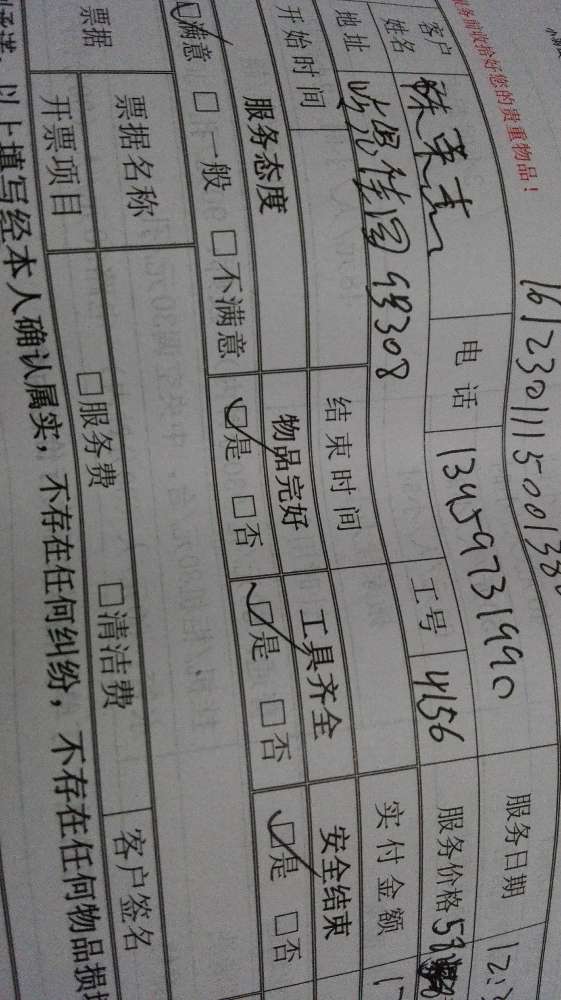 服务前收拾好您的贵重物品！
161230111500138
客户姓名 电话 13459731990 服务日期 12.
地址 佳园 9号308 工号 4156 服务价格
开始时间 结束时间 实付金额
服务态度 物品完好 工具齐全 安全结束
☑满意 □一般 □不满意 ☑是 □否 ☑是 □否 ☑是 □否
票据 票据名称 □服务费 □清洁费 客户签名
开票项目
以上填写经本人确认属实，不存在任何纠纷，不存在任何物品损